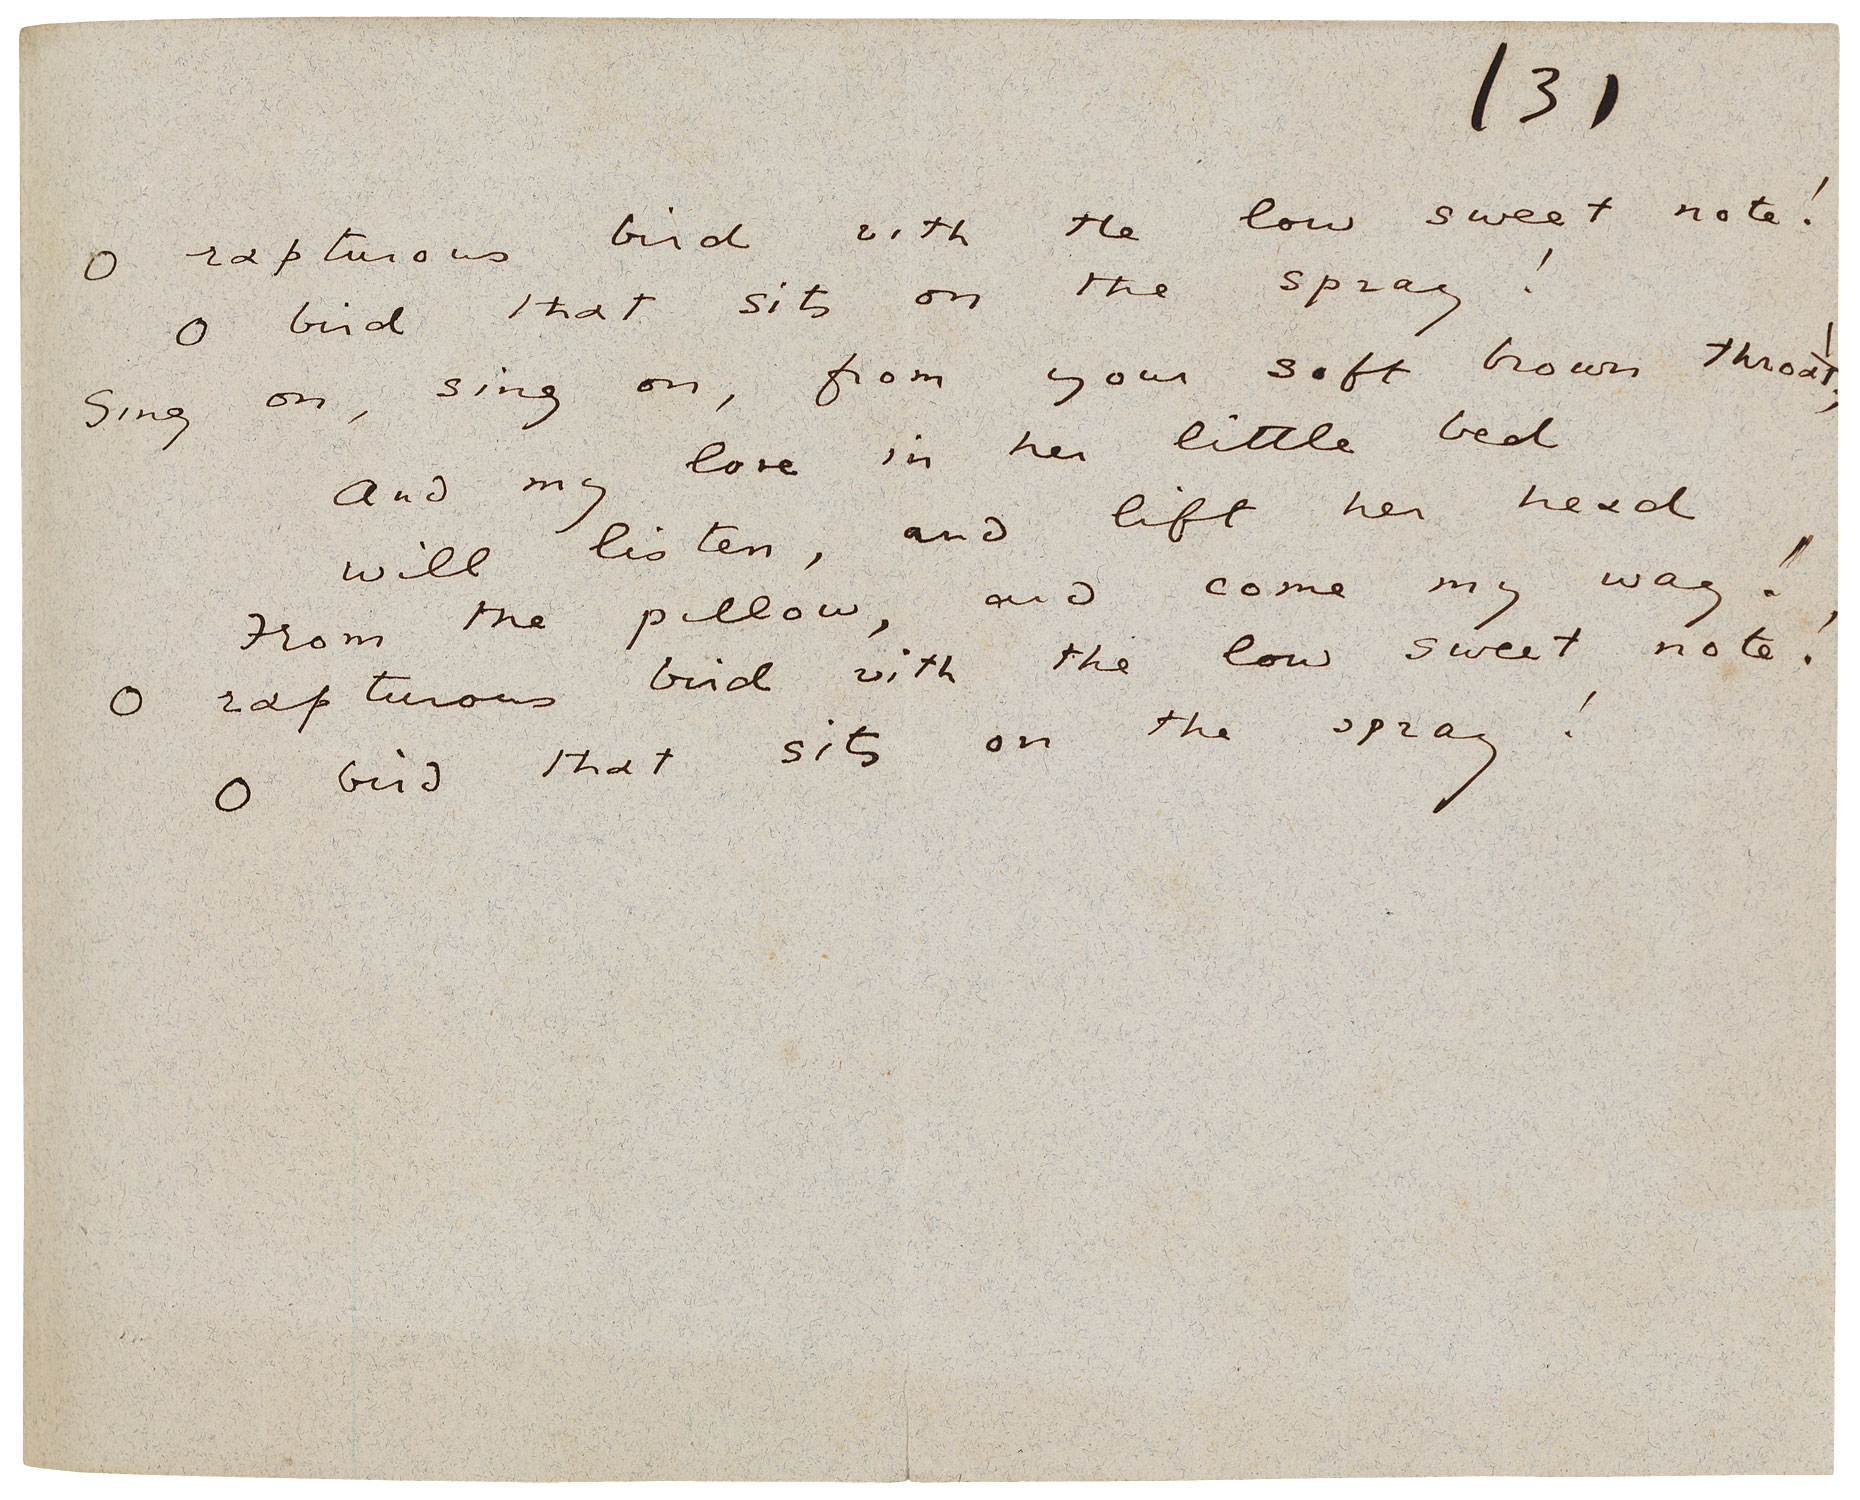 (3)
O rapturous bird with the low sweet note!
O bird that sits on the spray!
Sing on, sing on, from your soft brown throat,
And my love in her little bed
will listen, and lift her head
From the pillow, and come my way!
O rapturous bird with the low sweet note!
O bird that sits on the spray!